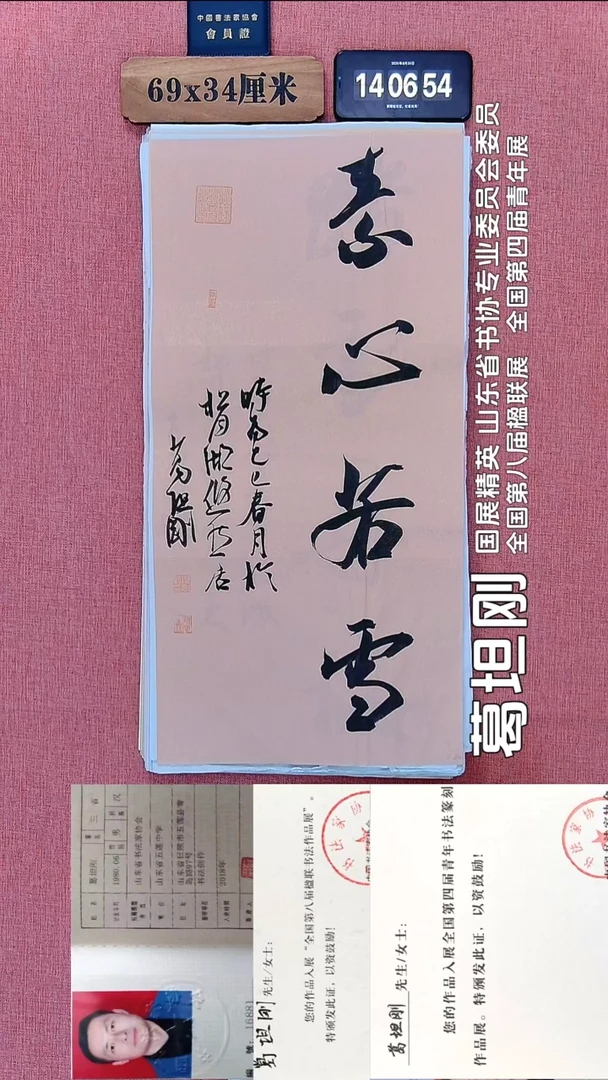 中國書法家協會
會員證
69x34厘米
14 06 54
素心若雪
時爲乙巳春月於
葛坦剛
葛坦刚
国展精英 山东省书协专业委员会委员
全国第八届楹联展 全国第四届青年展
葛坦刚
山东省书法家协会
山东省五莲中学
书法创作
2018年
葛坦刚 先生/女士:
您的作品入展“全国第八届楹联书法作品展”。
特颁发此证,以资鼓励!
葛坦刚 先生/女士:
您的作品入展全国第四届青年书法篆刻
作品展。特颁发此证,以资鼓励!